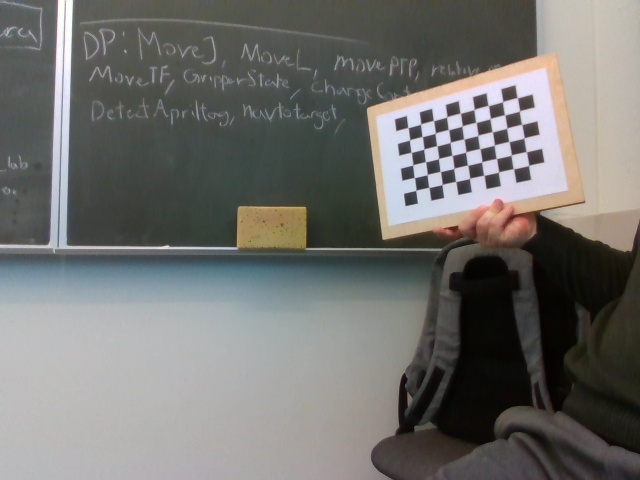 area
DP: MoveJ, MoveL, movePTP, relative
MoveTF, GripperState, change
Detect Apriltag, navtotarget,
lab